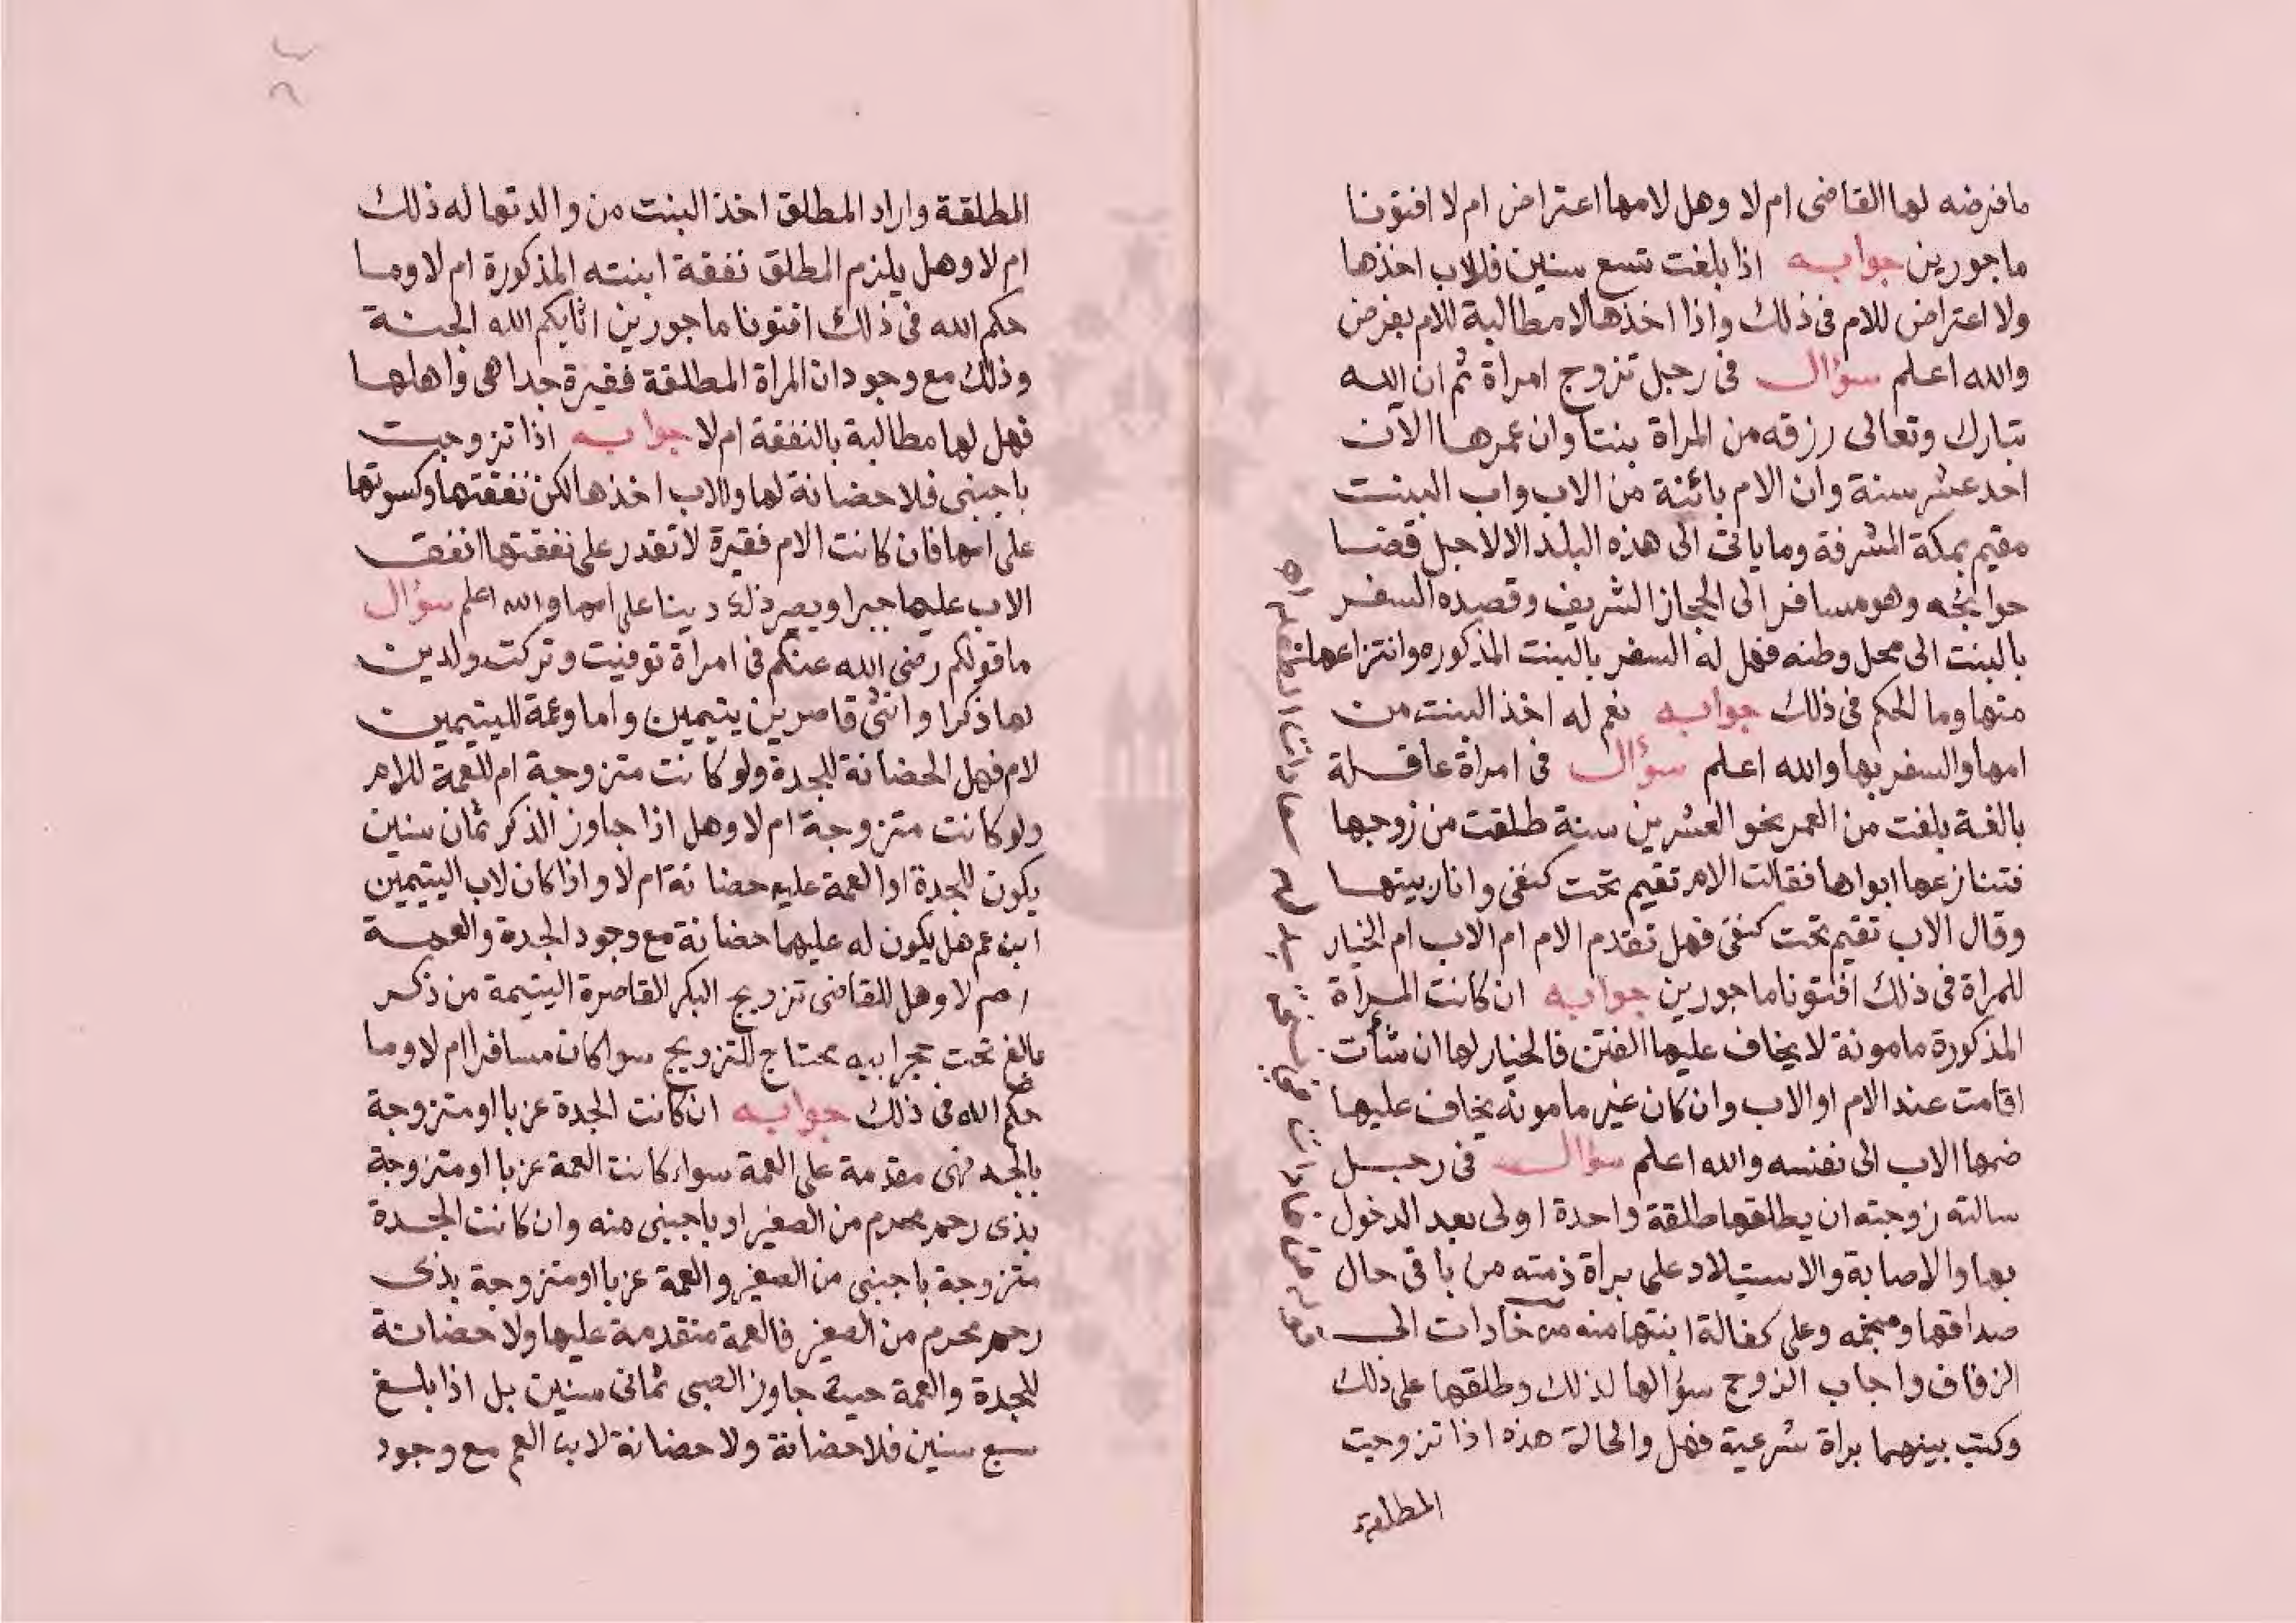 مافرضه لها القاضى ام لا وهل لامها اعتراض ام لا افتونا
ماجورين جوابه اذا بلغت تسع سنين فللاب اخذها
ولا اعتراض للام فى ذلك واذا اخذها لا مطالبة للام بفرض
والله اعلم سؤال فى رجل تزوج امراة ثم ان الله
تبارك وتعالى رزقه من المراة بنتا وان عمرها الآن
احد عشر سنة وان الام بائنة من الاب واب البنت
مقيم بمكة المشرفة وما ياتى الى هذه البلد الا لاجل قضا
حوائجه وهو مسافر الى الحجاز الشريف وقصده السفر
بالبنت الى محل وطنه فهل له السفر بالبنت المذكوره وانتزاعها
منها وما الحكم فى ذلك جوابه نعم له اخذ البنت من
امها والسفر بها والله اعلم سؤال فى امراة عاقلة
بالغة بلغت من العمر نحو العشرين سنة طلقت من زوجها
فتنازعها ابواها فقالت الام تقيم تحت كنفى وانا ربيتها
وقال الاب تقيم تحت كنفى فهل تقدم الام ام الاب ام الخيار
للمراة فى ذلك افتونا ماجورين جوابه ان كانت المراة
المذكورة مامونة لا يخاف عليها الفتن فالخيار لها ان شأت
اقامت عند الام او الاب وان كان غير مامونه يخاف عليها
ضمها الاب الى نفسه والله اعلم سؤال فى رجل
سالته زوجته ان يطلقها طلقة واحدة اولى بعد الدخول
بها والاصابة والاستيلاد على براة ذمته من باقى حال
صداقها ومنجمه وعلى كفالة ابنتها منه من خادات الى
الزفاف واجاب الزوج سؤالها لذلك وطلقها على ذلك
وكتب بينهما براة شرعية فهل والحالة هذه اذا تزوجت
المطلقة
المطلقة واراد المطلق اخذ البنت من والدتها له ذلك
ام لا وهل يلزم المطلق نفقة ابنته المذكورة ام لا وما
حكم الله فى ذلك افتونا ماجورين اثابكم الله الجنة
وذلك مع وجود ان المراة المطلقة فقيرة جدا هى واهلها
فهل لها مطالبة بالنفقة ام لا جوابه اذا تزوجت
باجنبى فلا حضانة لها وللاب اخذها لكن نفقتها وكسوتها
على امها فان كانت الام فقيرة لا تقدر على نفقتها انفق
الاب عليها جبرا ويصير ذلك دينا على امها والله اعلم سؤال
ما قولكم رضى الله عنكم فى امراة توفيت وتركت ولدين
لها ذكرا وانثى قاصرين يتيمين واما وعمة لليتيمين
لام فهل الحضانة للجدة ولو كانت متزوجة ام للعمة للام
ولو كانت متزوجة ام لا وهل اذا جاوز الذكر ثمان سنين
يكون للجدة او العمة عليه حضانة ام لا واذا كان لاب اليتيمين
ابن عم هل يكون له عليهما حضانة مع وجود الجدة والعمة
ام لا وهل للقاضى تزويج البكر القاصرة اليتيمة من ذكر
بالغ تحت حجر ابيه محتاج للتزويج سوا كان مسافرا ام لا وما
حكم الله فى ذلك جوابه ان كانت الجدة عزبا او متزوجة
بالجد فهى مقدمة على العمة سواء كانت العمة عزبا او متزوجة
بذى رحم محرم من الصغير او باجنبى منه وان كانت الجدة
متزوجة باجنبى من الصغير والعمة عزبا او متزوجة بذى
رحم محرم من الصغير فالعمة متقدمة عليها ولا حضانة
للجدة والعمة حيث جاوز الصبى ثمانى سنين بل اذا بلغ
سبع سنين فلا حضانة ولا حضانة لابن العم مع وجود